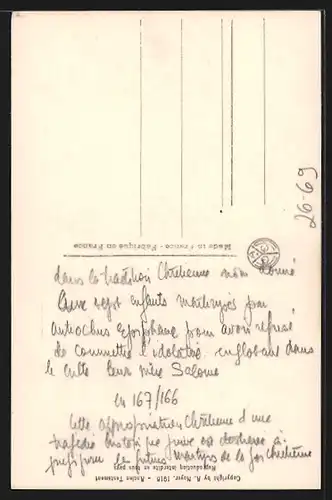 26-69
Made in France - Fabriqué en France
dans la tradition Chrétienne nom donné
Aux sept enfants martyrisés par
Antiochus Epiphane pour avoir refusé
de commettre l'idolatrie englobant dans
le culte leur mère Salomé
en 167/166
Cette appropriation Chrétienne d'une
tragédie juive est destinée à
les futurs martyrs de la foi chrétienne
Copyright by A. Noyer, 1918 - Ancien Testament
Reproduction interdite en tous pays